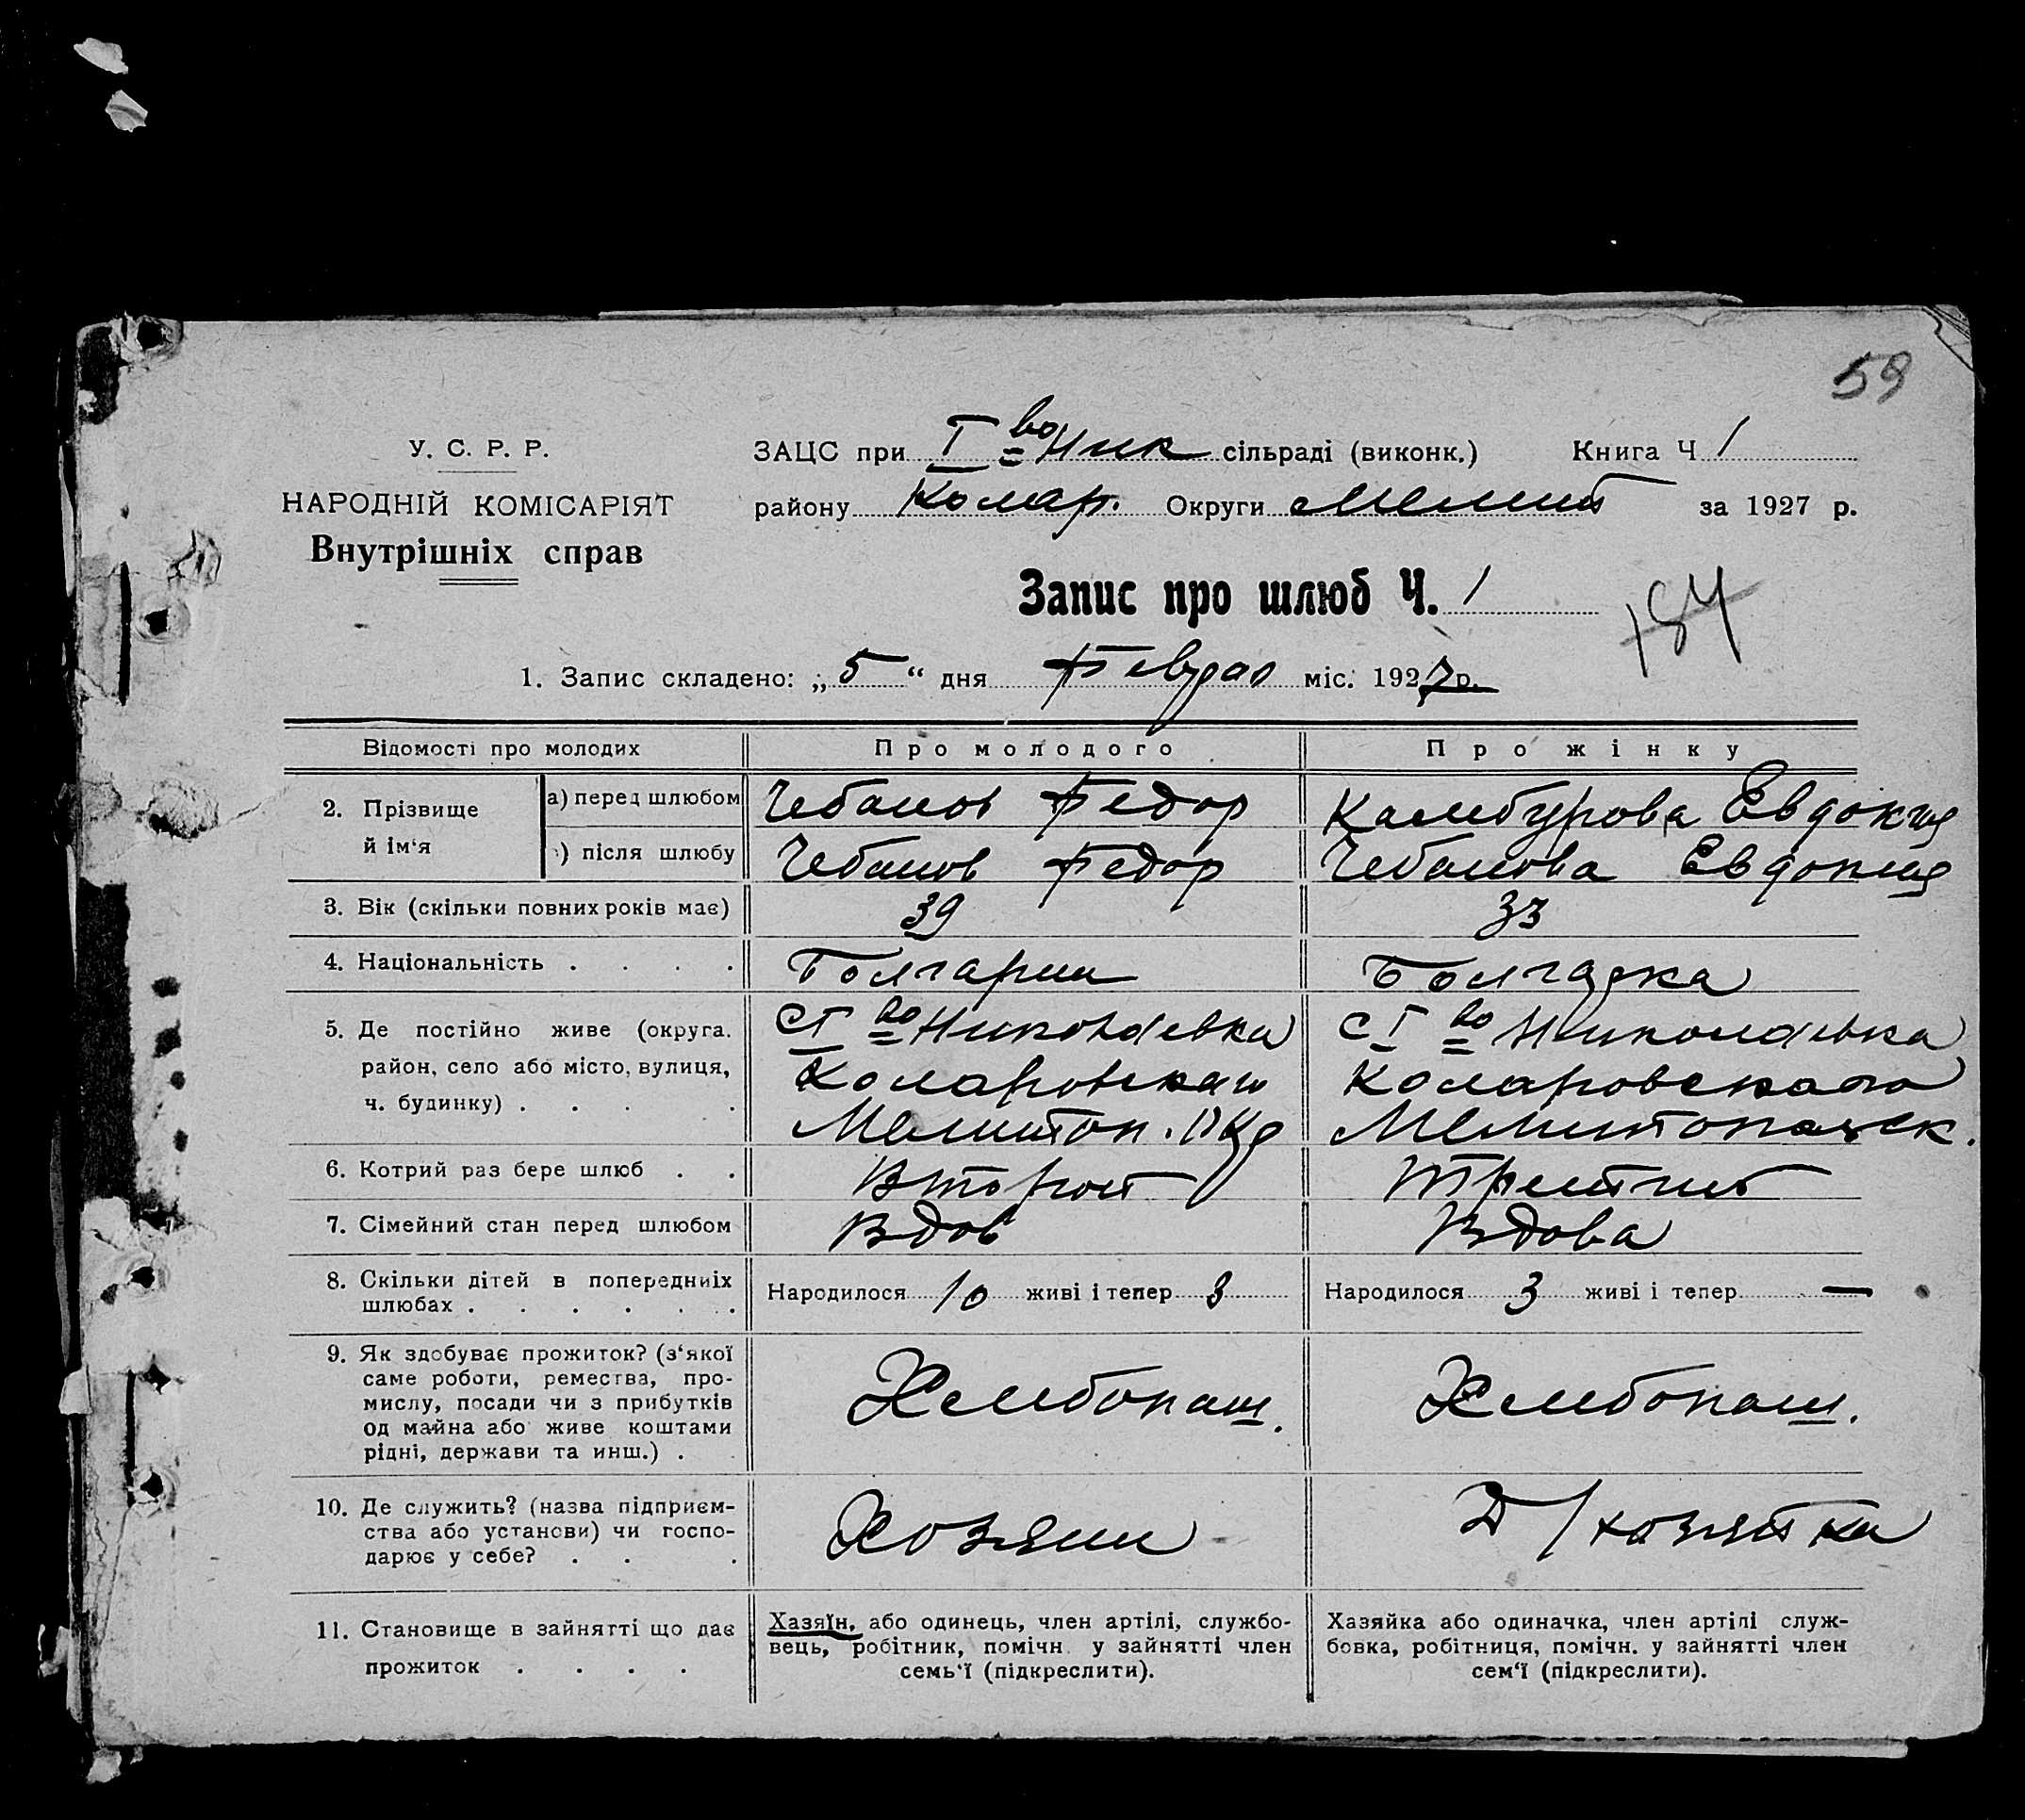 59
У. С. Р. Р.
НАРОДНІЙ КОМІСАРІЯТ
Внутрішніх справ
ЗАЦС при I во Ник сільраді (виконк.) Книга Ч 1
району Колар. Округи Мелит за 1927 р.
Запис про шлюб Ч. 1
184
1. Запис складено: „5“ дня Феврал міс. 1927 р.
Відомості про молодих Про молодого Про жінку
2. Прізвище й ім‘я а) перед шлюбом Чебанов Федор Камбурова Евдокия
) після шлюбу Чебанов Федор Чебанова Евдокия
3. Вік (скільки повних років має) 39 33
4. Національність . . . . Болгарин Болгарка
5. Де постійно живе (округа. с I во Николаевка с I во Николаевка
район, село або місто, вулиця, Коларовскаго Коларовскаго
ч. будинку) . . . . Мелитоп. Окр Мелитопольск.
6. Котрий раз бере шлюб . . Второй Третий
7. Сімейний стан перед шлюбом Вдов Вдова
8. Скільки дітей в попередніх Народилося 10 живі і тепер 3 Народилося 3 живі і тепер —
шлюбах . . . . . .
9. Як здобуває прожиток? (з‘якої
саме роботи, ремества, про-
мислу, посади чи з прибутків Хлебопаш. Хлебопаш.
од майна або живе коштами
рідні, держави та инш.) .
10. Де служить? (назва підприєм-
ства або установи) чи госпо- Хозяин Д/хозяйка
дарює у себе? . . .
11. Становище в зайнятті що дає
прожиток . . . .
Хазяїн, або одинець, член артілі, службо-
вець, робітник, помічн. у зайнятті член
семь‘ї (підкреслити).
Хазяйка або одиначка, член артілі служ-
бовка, робітниця, помічн. у зайнятті член
сем‘ї (підкреслити).